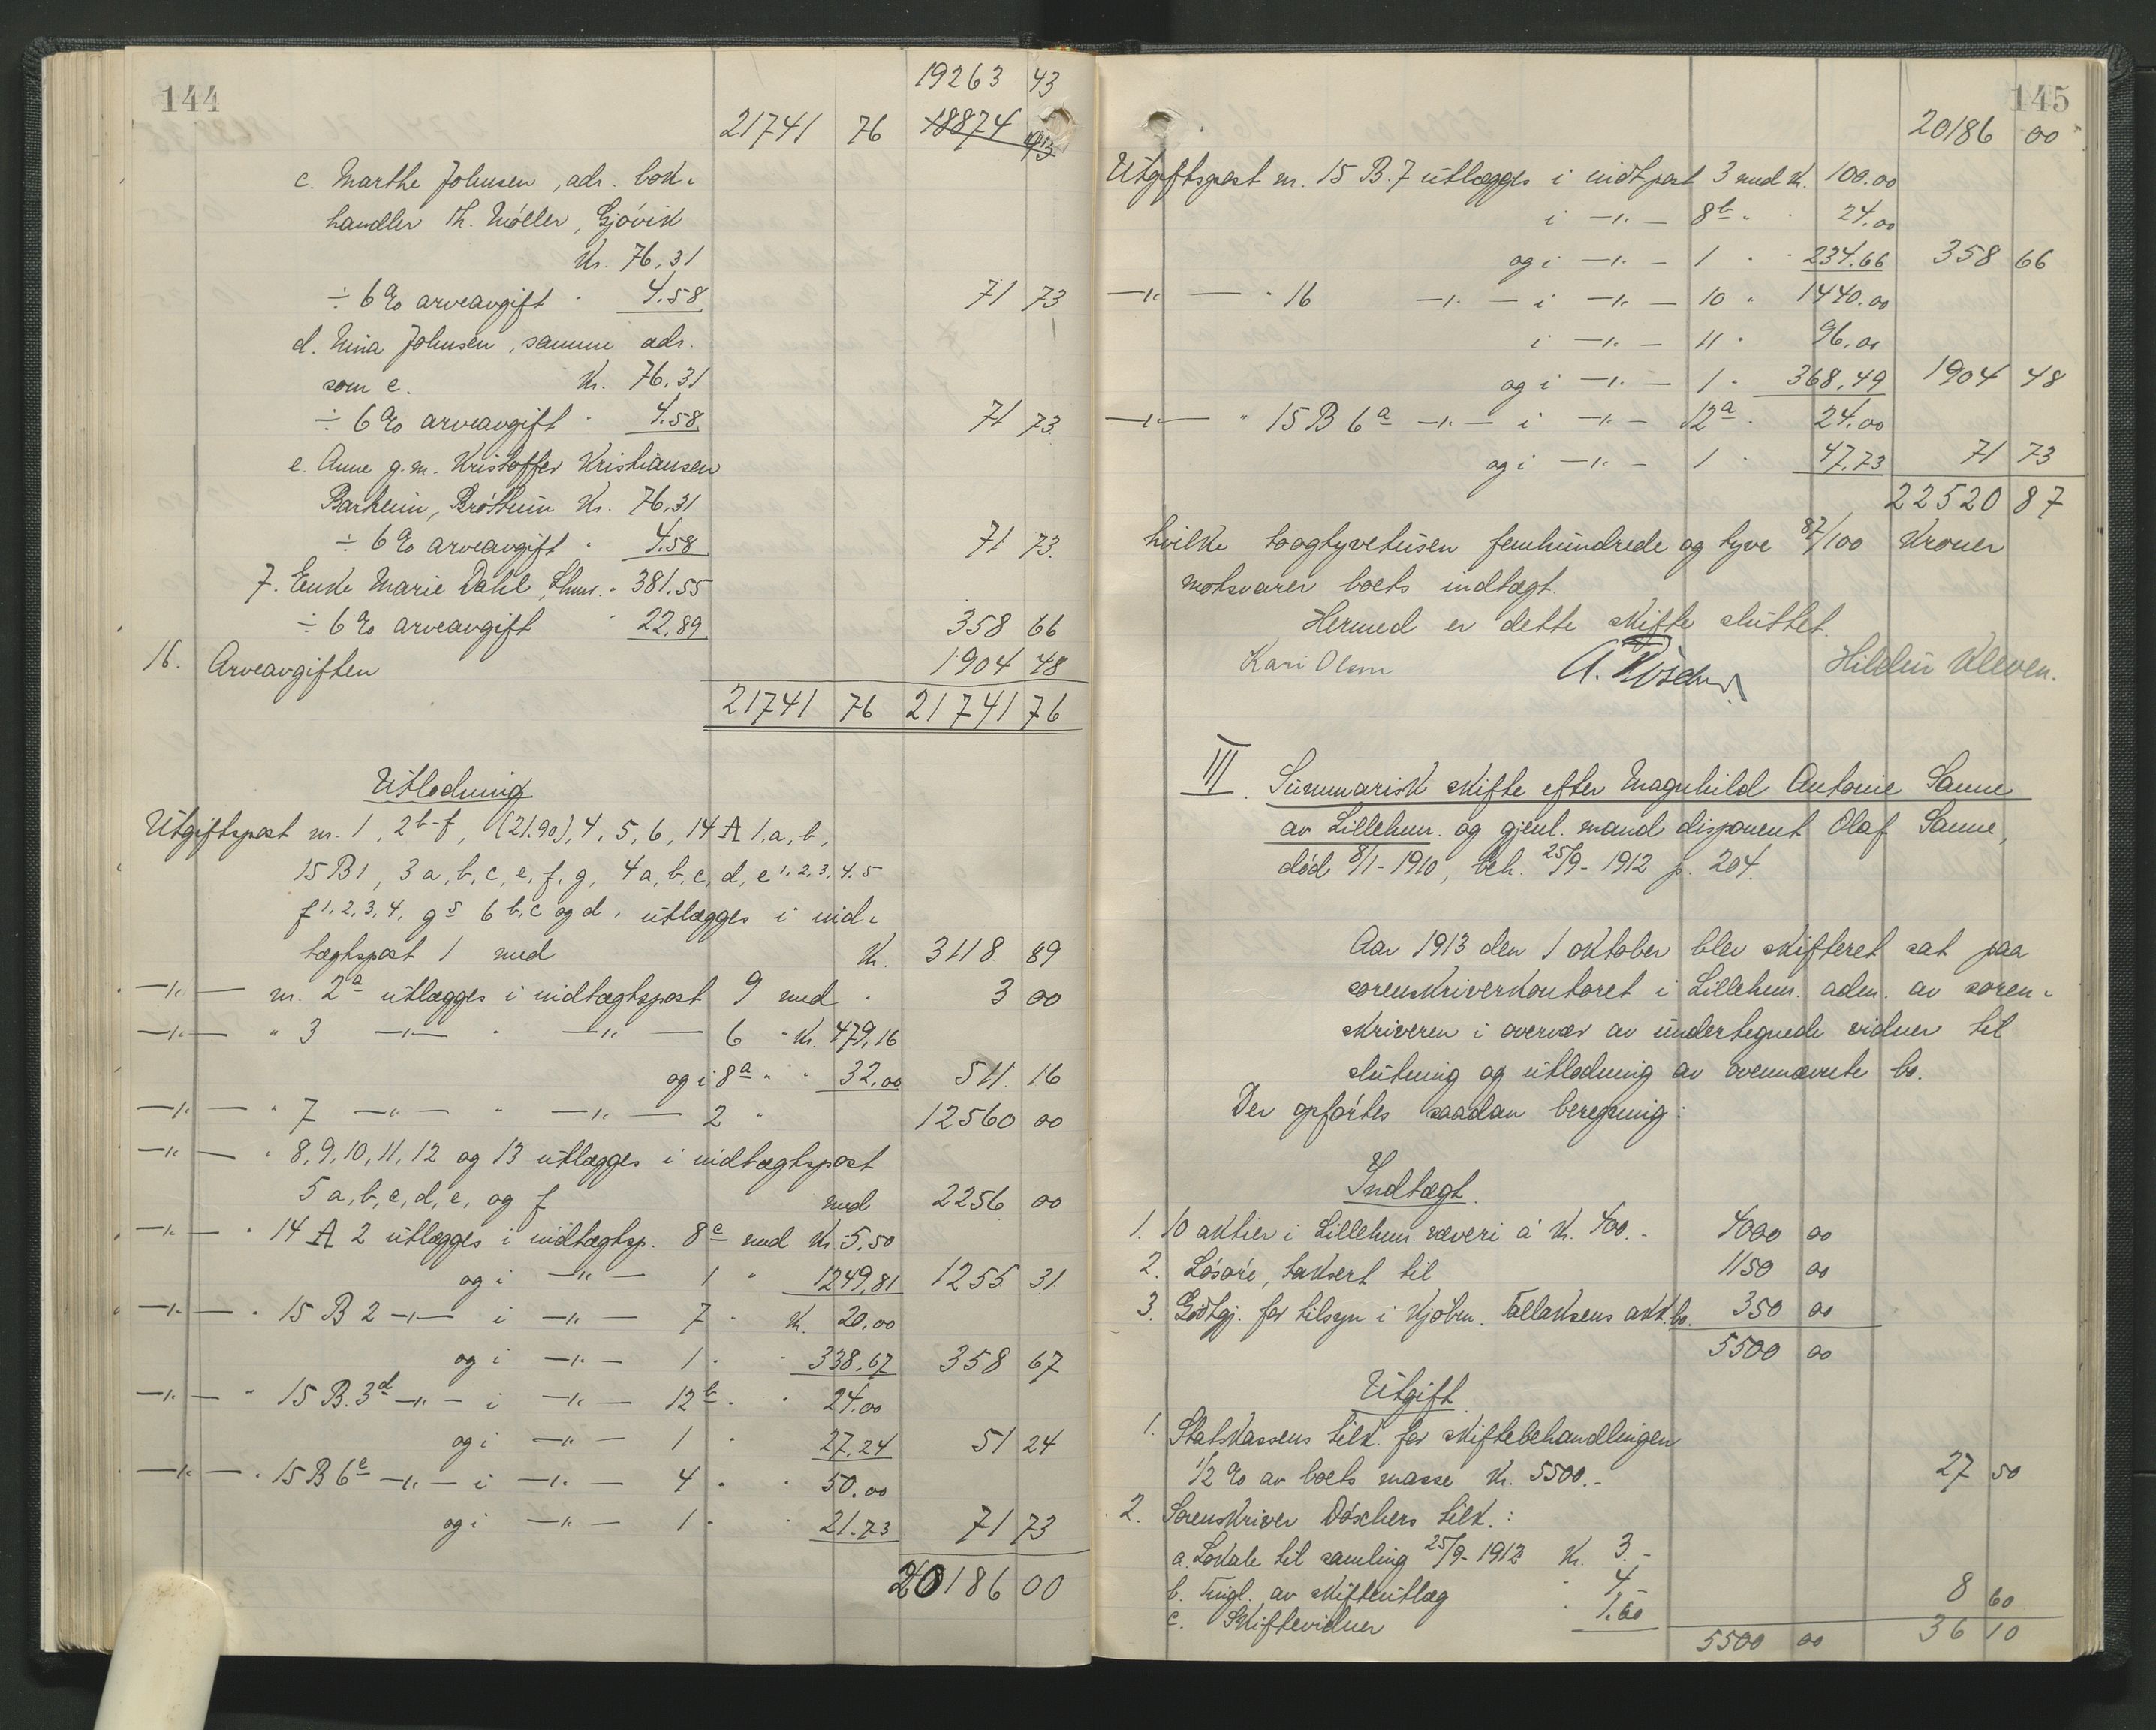 144
19263 43
21741 76 18874
c. Marthe Johnsen, adr. bok-
handler Th. Møller, Gjøvik
Kr. 76.31
÷ 6 % arveavgift " 4.58 71 73
d. Nina Johnsen, samme adr.
som c. Kr. 76.31
÷ 6 % arveavgift " 4.58 71 73
e. Anne g.m. Kristoffer Kristiansen
Barheim, Brøttum Kr. 76.31
÷ 6 % arveavgift " 4.58 71 73
7. Enke Marie Dahl, Lhmr. " 381.55
÷ 6 % arveavgift " 22.89 358 66
16. Arveavgiften 1904 48
21741 76 21741 76
Utlodning
Utgiftspost nr. 1, 2 b-f, (21.90), 4, 5, 6, 14 A 1. a, b,
15 B 1, 3 a, b, c, e, f, g, 4 a, b, c, d, e 1, 2, 3, 4, 5
f 1, 2, 3, 4, g 5 6 b, c og d, utlægges i ind-
tægtspost 1 med Kr. 3118 89
—"— nr. 2 a utlægges i indtægtspost 9 med " 3 00
—"— " 3 —"— " —"— 6 " Kr. 479.16
og i 8 a " " 32.00 511 16
—"— " 7 —"— " —"— 2 " 12560 00
—"— " 8, 9, 10, 11, 12 og 13 utlægges i indtægtspost
5 a, b, c, d, e, og f med 2256 00
—"— " 14 A 2 utlægges i indtægtsp. 8 c med Kr. 5.50
og i —"— 1 " 1249.81 1255 31
—"— " 15 B 2 —"— i —"— 7 " Kr. 20.00
og i —"— 1 " " 338.67 358 67
—"— " 15 B. 3 d —"— i —"— 12 b " " 24.00
og i —"— 1 " 27.24 51 24
—"— " 15 B 6 e —"— i —"— 4 " " 50.00
og i —"— 1 " " 21.73 71 73
20186 00
145
20186 00
Utgiftspost nr. 15 B. 7 utlægges i indt.post 3 med Kr. 100.00
i —"— 8 b " " 24.00
og i —"— 1 " " 234.66 358 66
—"— " 16 —"— i —"— 10 " 1440.00
i —"— 11 " 96.00
og i —"— 1 " 368.49 1904 48
—"— " 15 B 6 a —"— i —"— 12 a " 24.00
og i —"— 1 " 47.73 71 73
22520 87
hvilke toogtyvetusen femhundrede og tyve 87/100 Kroner
motsvarer boets indtægt.
Hermed er dette skifte sluttet.
Kari Olsen A. Døscher Hildur Kleven.
III. Summarisk skifte efter Magnhild Antonie Sanne
av Lillehmr. og gjenl. mand disponent Olaf Sanne,
død 8/1-1910, beh. 25/9-1912 p. 204.
Aar 1913 den 1 oktober blev skifteret sat paa
sorenskriverkontoret i Lillehmr. adm. av soren-
skriveren i overvær av undertegnede vidner til
slutning og utlodning av ovennævnte bo.
Der opførtes saadan beregning:
Indtægt.
1. 10 aktier i Lillehmr. væveri á Kr. 400.- 4000 00
2. Løsøre, taksert til 1150 00
3. Godtgj. for tilsyn i Kjøbm. Tallaksens akk.bo. 350 00
5500 00
Utgift
1. Statskassens tilk. for skiftebehandlingen
1/2 % av boets masse Kr. 5500.- 27 50
2. Sorenskriver Døschers tilk.:
a. Lokale til samling 25/9-1912 Kr. 3.-
b. Tingl. av skifteutlæg " 4.-
c. Skiftevidner 1.60 8 60
5500 00 36 10